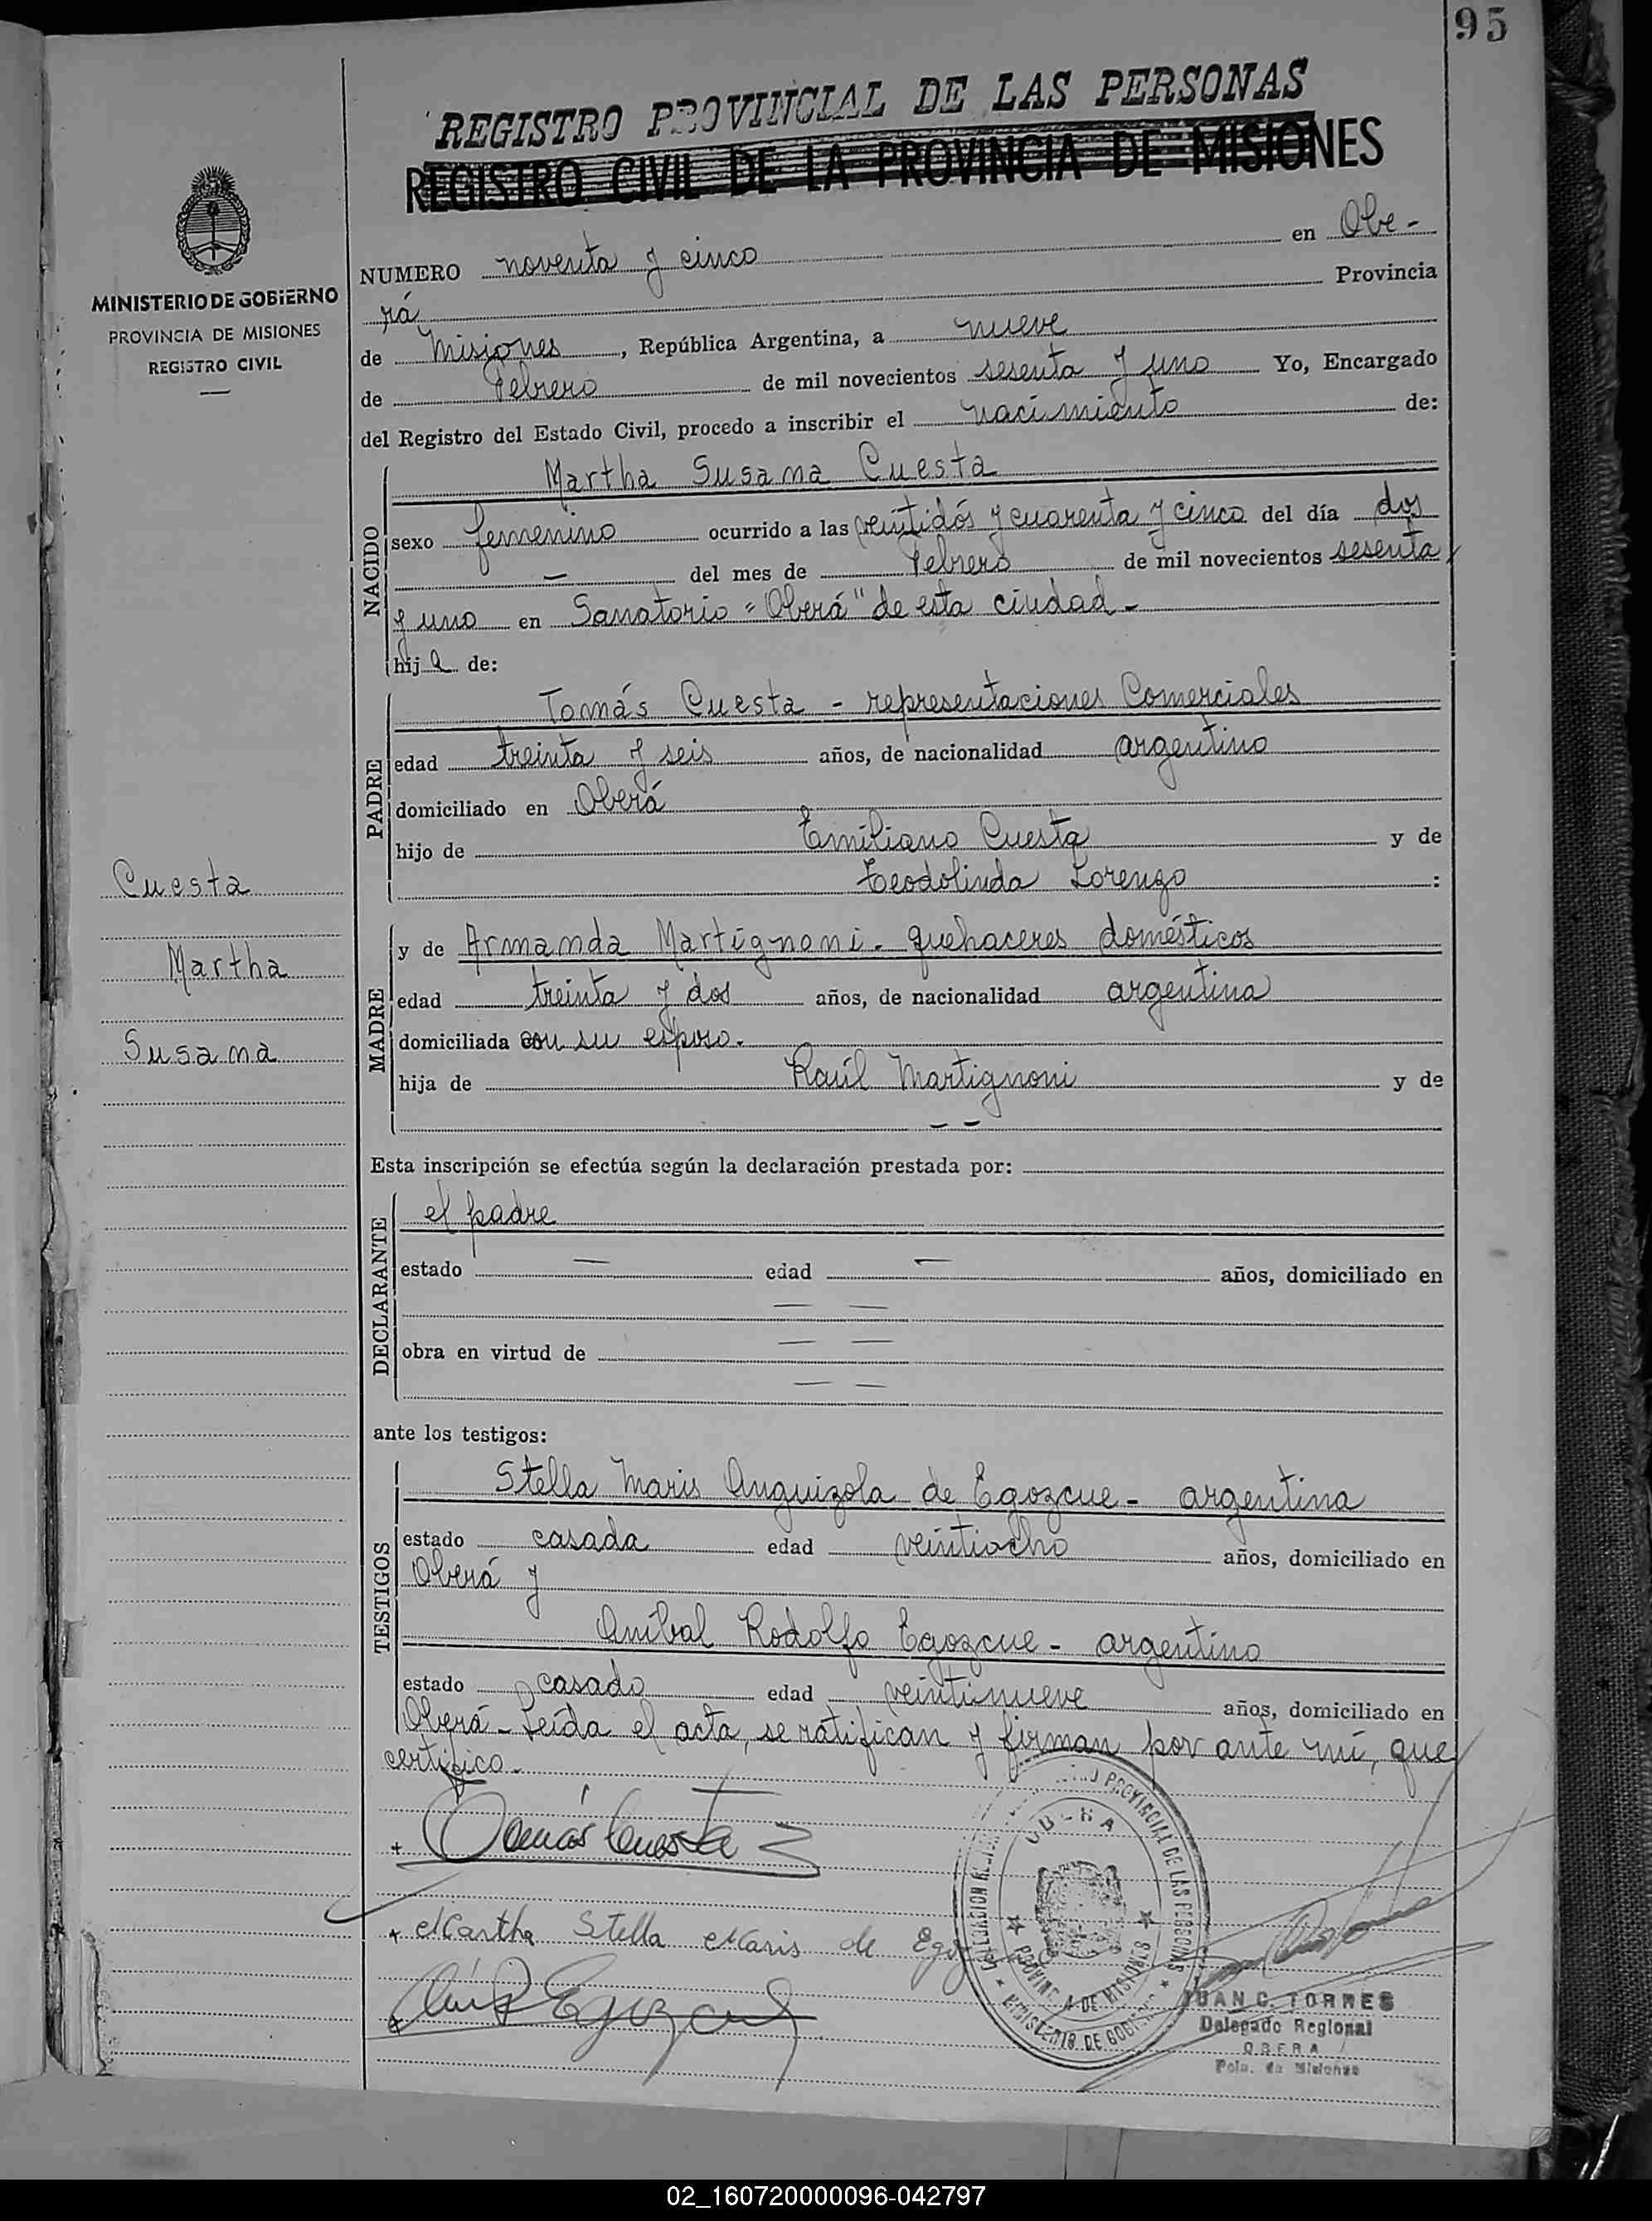 95
REGISTRO PROVINCIAL DE LAS PERSONAS
REGISTRO CIVIL DE LA PROVINCIA DE MISIONES
MINISTERIO DE GOBIERNO
PROVINCIA DE MISIONES
REGISTRO CIVIL
NUMERO noventa y cinco en Obe-
rá Provincia
de Misiones, República Argentina, a nueve
de Febrero de mil novecientos sesenta y uno Yo, Encargado
del Registro del Estado Civil, procedo a inscribir el nacimiento de:
NACIDO
Martha Susana Cuesta
sexo femenino ocurrido a las veintidós y cuarenta y cinco del día dos
— del mes de Febrero de mil novecientos sesenta
y uno en Sanatorio "Oberá" de esta ciudad-
hija de:
PADRE
Tomás Cuesta - representaciones Comerciales
edad treinta y seis años, de nacionalidad argentino
domiciliado en Oberá
hijo de Emiliano Cuesta y de
Teodolinda Lorenzo :
Cuesta
Martha
Susana
MADRE
y de Armanda Martignoni - quehaceres domésticos
edad treinta y dos años, de nacionalidad argentina
domiciliada con su esposo.
hija de Raúl Martignoni y de
— —
Esta inscripción se efectúa según la declaración prestada por:
DECLARANTE
el padre
estado — edad — años, domiciliado en
— —
obra en virtud de — —
— —
ante los testigos:
TESTIGOS
Stella Maris Anguizola de Egozcue - argentina
estado casada edad veintiocho años, domiciliado en
Oberá y
Aníbal Rodolfo Egozcue - argentino
estado casado edad veintinueve años, domiciliado en
Oberá - Leída el acta, se ratifican y firman por ante mí, que
certifico.
+ Tomás Cuesta
+ Martha Stella Maris de
PROVINCIAL DE LAS PERSONAS
OBERA
PROVINCIA DE MISIONES
MINISTERIO DE GOBIERNO
JUAN C. TORRES
Delegado Regional
OBERA
Pcia. de Misiones
02_160720000096-042797